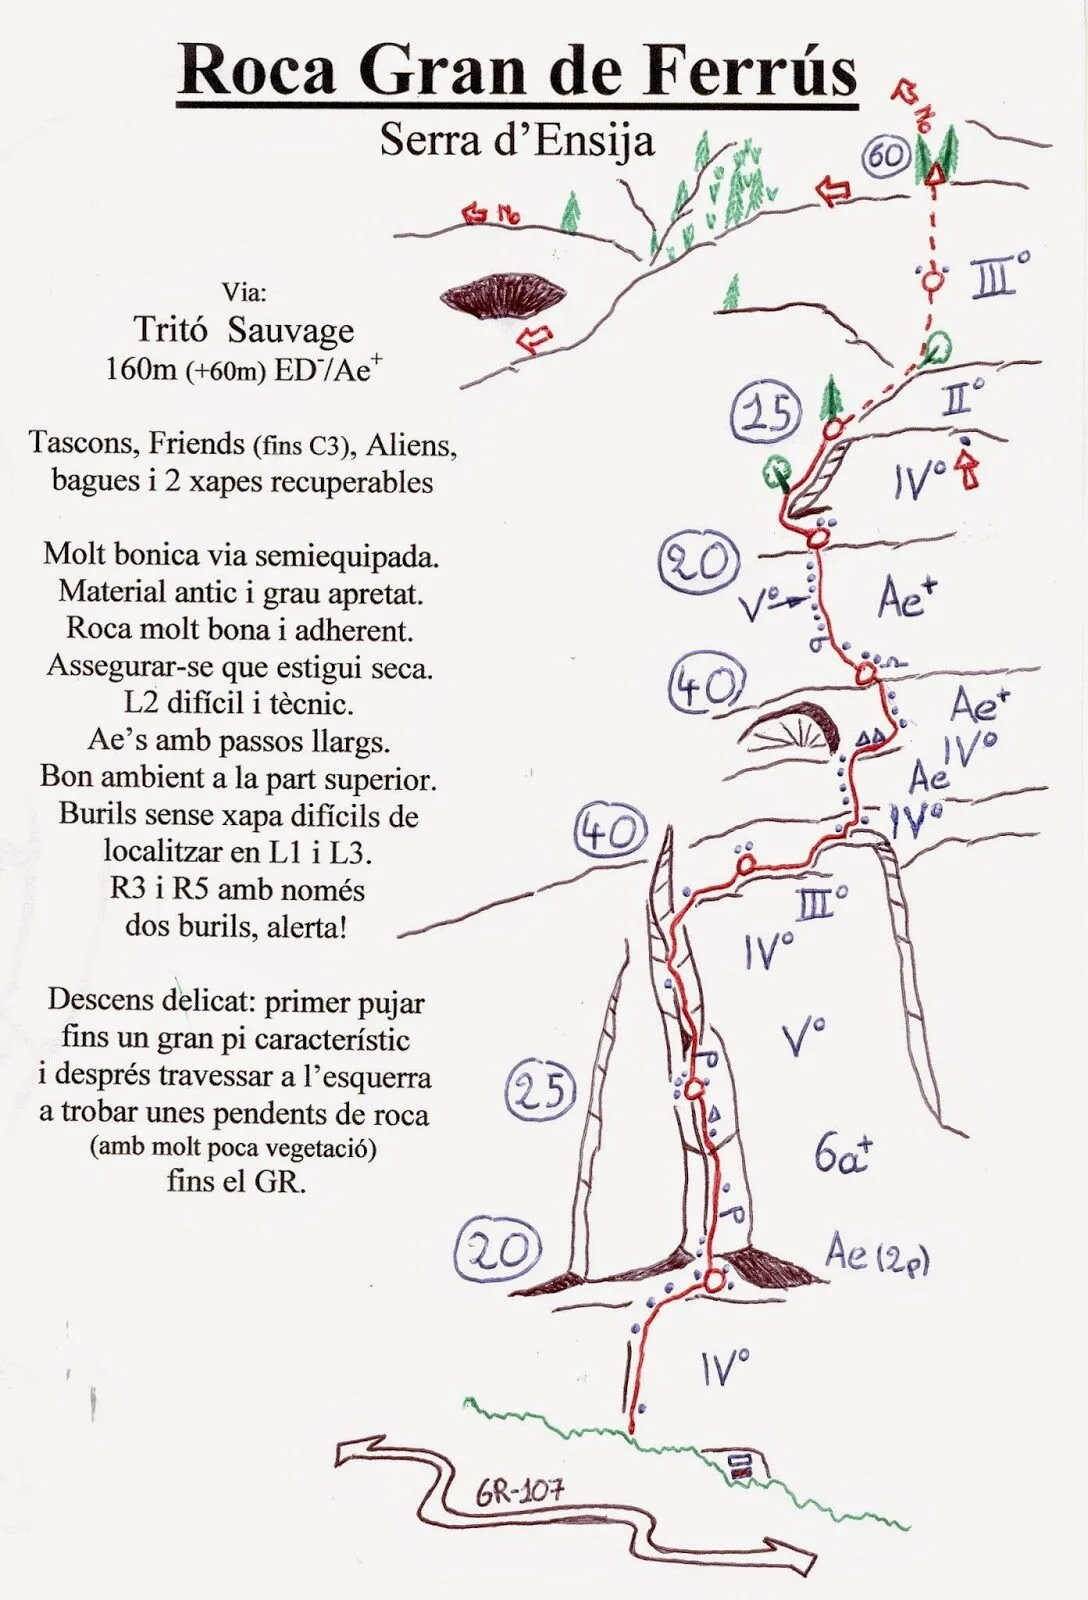 Roca Gran de Ferrús
Serra d'Ensija
Via:
Tritó Sauvage
160m (+60m) ED⁻/Ae⁺
Tascons, Friends (fins C3), Aliens,
bagues i 2 xapes recuperables
Molt bonica via semiequipada.
Material antic i grau apretat.
Roca molt bona i adherent.
Assegurar-se que estigui seca.
L2 difícil i tècnic.
Ae's amb passos llargs.
Bon ambient a la part superior.
Burils sense xapa difícils de
localitzar en L1 i L3.
R3 i R5 amb només
dos burils, alerta!
Descens delicat: primer pujar
fins un gran pi característic
i després travessar a l'esquerra
a trobar unes pendents de roca
(amb molt poca vegetació)
fins el GR.
60
No
No
III°
II°
15
IV°
20
V°
Ae⁺
40
Ae⁺
IV°
Ae
IV°
40
III°
IV°
V°
25
6a⁺
20
Ae (2p)
IV°
GR-107